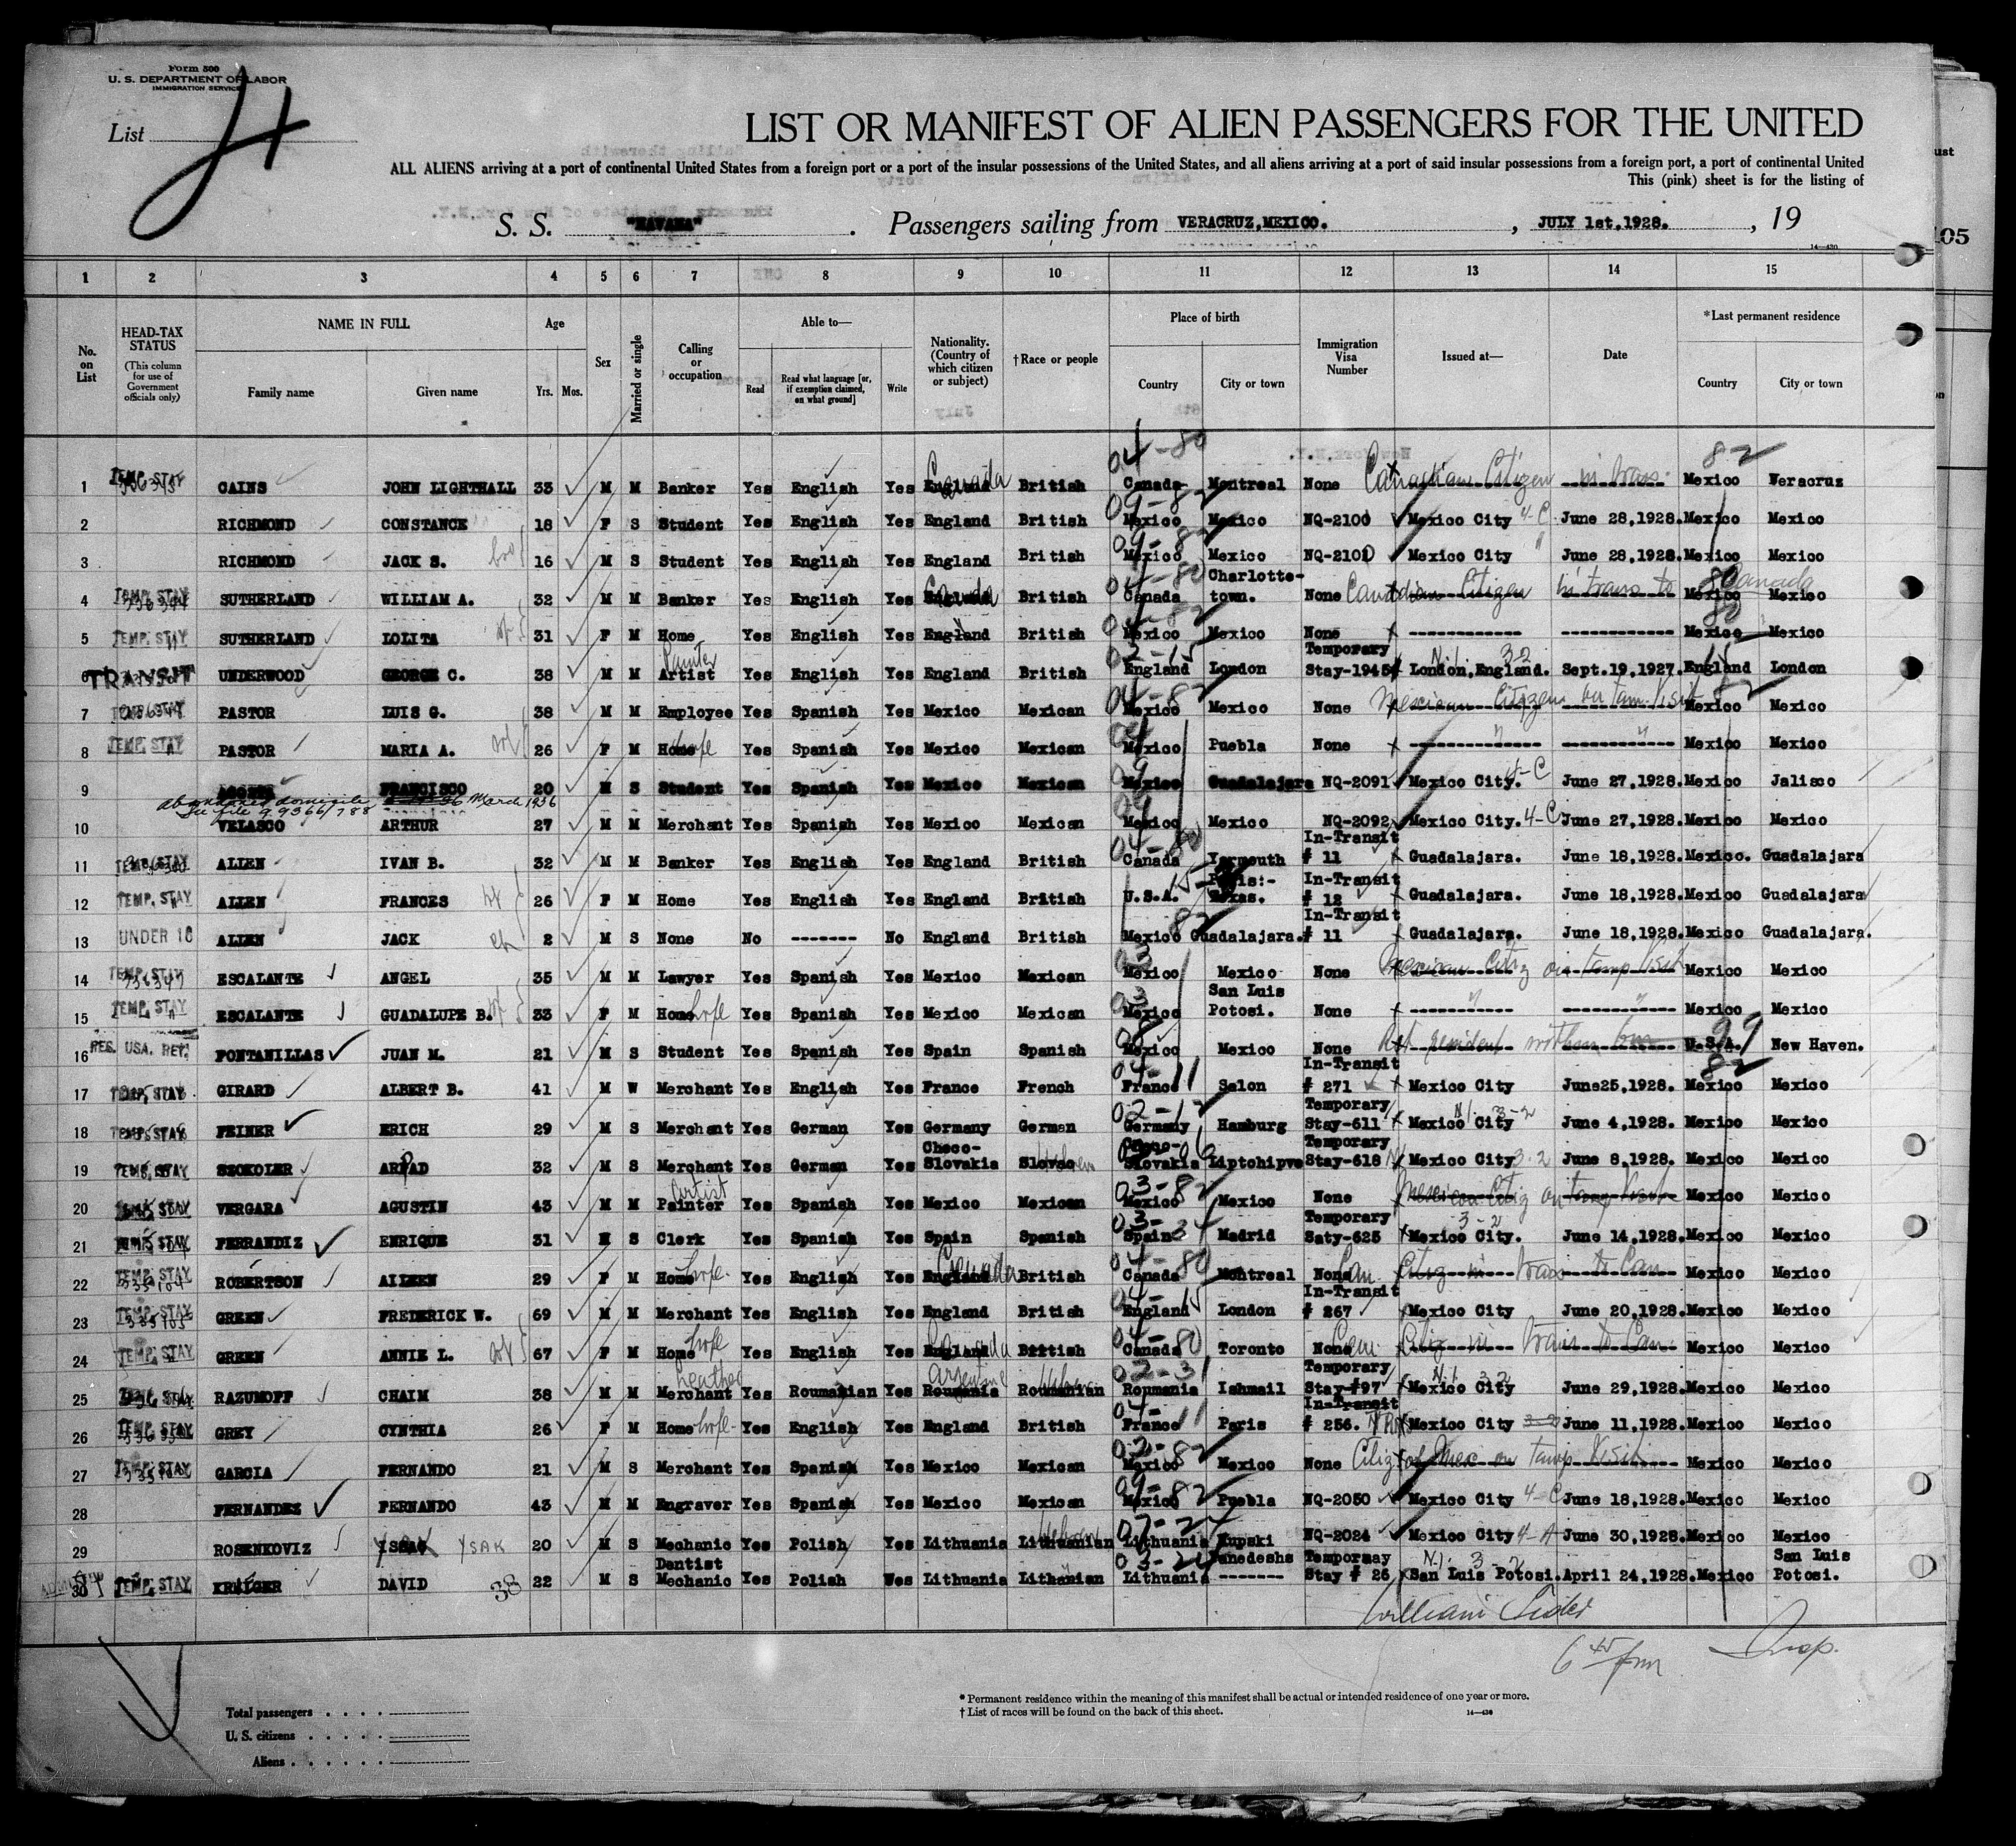 Form 500
U. S. DEPARTMENT OF LABOR
IMMIGRATION SERVICE
List 4
LIST OR MANIFEST OF ALIEN PASSENGERS FOR THE UNITED
ALL ALIENS arriving at a port of continental United States from a foreign port or a port of the insular possessions of the United States, and all aliens arriving at a port of said insular possessions from a foreign port, a port of continental United
This (pink) sheet is for the listing of
S. S. "HAVANA" . Passengers sailing from VERACRUZ,MEXICO. , JULY 1st,1928. , 19
14—430
1 2 3 4 5 6 7 8 9 10 11 12 13 14 15
No. on List
HEAD-TAX STATUS (This column for use of Government officials only)
NAME IN FULL Family name Given name
Age Yrs. Mos.
Sex
Married or single
Calling or occupation
Able to— Read Read what language [or, if exemption claimed, on what ground] Write
Nationality. (Country of which citizen or subject)
† Race or people
Place of birth Country City or town
Immigration Visa Number
Issued at—
Date
* Last permanent residence Country City or town
1 TEMP. STAY CAINS JOHN LIGHTHALL 33 M M Banker Yes English Yes England Canada British 04-80 Canada Montreal None Canadian Citizen in trans. 82 Mexico Veracruz
2 RICHMOND CONSTANCE 18 F S Student Yes English Yes England British 09-82 Mexico Mexico NQ-2100 Mexico City 4-C June 28,1928. Mexico Mexico
3 RICHMOND JACK S. bro 16 M S Student Yes English Yes England British 09-82 Mexico Mexico NQ-2101 Mexico City " June 28,1928. Mexico Mexico
4 TEMP. STAY SUTHERLAND WILLIAM A. 32 M M Banker Yes English Yes England Canada British 04-80 Canada Charlotte-town. None Canadian Citizen in trans to 80 Canada Mexico Mexico
5 TEMP. STAY SUTHERLAND LOLITA wf 31 F M Home Yes English Yes England British 04-82 Mexico Mexico None ------------ ------------ 80 Mexico Mexico
6 TRANSIT UNDERWOOD GEORGE C. 38 M M Painter Artist Yes English Yes England British 02-15 England London Temporary Stay-1945 N.I. 3-2 London,England. Sept.19,1927. 15 England London
7 PASTOR LUIS G. 38 M M Employee Yes Spanish Yes Mexico Mexican 04-82 Mexico Mexico None Mexican Citizen on tem. Visit 82 Mexico Mexico
8 TEMP. STAY PASTOR MARIA A. wf 26 F M Home hwfe Yes Spanish Yes Mexico Mexican 04 Mexico Puebla None " " Mexico Mexico
9 FRANCISCO 20 M S Student Yes Spanish Yes Mexico Mexican 09 Mexico Guadalajara NQ-2091 Mexico City. 4-C June 27,1928. Mexico Jalisco
abandoned domicile March 1936
See file 99366/788
10 VELASCO ARTHUR 27 M M Merchant Yes Spanish Yes Mexico Mexican 09 Mexico Mexico NQ-2092 Mexico City. 4-C June 27,1928. Mexico Mexico
11 TEMP. STAY ALLEN IVAN B. 32 M M Banker Yes English Yes England British 04-80 Canada Yarmouth In-Transit # 11 Guadalajara. June 18,1928. Mexico. Guadalajara
12 TEMP. STAY ALLEN FRANCES wf 26 F M Home Yes English Yes England British 15 U.S.A. Paris:- Texas. In-Transit # 12 Guadalajara. June 18,1928. Mexico Guadalajara
13 UNDER 16 ALLEN JACK ch 2 M S None No ------- No England British 82 Mexico Guadalajara. In-Transit # 11 Guadalajara. June 18,1928. Mexico Guadalajara.
14 TEMP. STAY ESCALANTE ANGEL 35 M M Lawyer Yes Spanish Yes Mexico Mexican 03 Mexico Mexico None Mexican Citiz on temp Visit Mexico Mexico
15 TEMP. STAY ESCALANTE GUADALUPE B. wf 33 F M Home hwfe Yes Spanish Yes Mexico Mexican 03 Mexico San Luis Potosi. None " " Mexico Mexico
16 RES. USA. RET. FONTANILLAS JUAN M. 21 M S Student Yes Spanish Yes Spain Spanish 08 Mexico Mexico None Ret resident within 99 U.S.A. New Haven.
17 TEMP. STAY GIRARD ALBERT B. 41 M W Merchant Yes English Yes France French 04-11 France Salon In-Transit # 271 Mexico City June25,1928. 82 Mexico Mexico
18 TEMP. STAY FEINER ERICH 29 M S Merchant Yes German Yes Germany German 02-12 Germany Hamburg Temporary Stay-611 N.I. 3-2 Mexico City June 4,1928. Mexico Mexico
19 TEMP. STAY SZOKOLER ARPAD 32 M S Merchant Yes German Yes Checo-Slovakia Slovac Hebrew 06 Slovakia Liptohipve Temporary Stay-618 Mexico City 3-2 June 8,1928. Mexico Mexico
20 TEMP. STAY VERGARA AGUSTIN 43 M M Artist Painter Yes Spanish Yes Mexico Mexican 03-82 Mexico Mexico None Mexican Citiz on temp Visit Mexico Mexico
21 TEMP. STAY FERRANDIZ ENRIQUE 31 M S Clerk Yes Spanish Yes Spain Spanish 03-34 Spain Madrid Temporary Saty-625 3-2 Mexico City. June 14,1928. Mexico Mexico
22 TEMP. STAY ROBERTSON AILEEN 29 F M Home hwfe. Yes English Yes England Canada British 04-80 Canada Montreal None Can. Citiz in trans to Can. Mexico Mexico
23 TEMP. STAY GREEN FREDERICK W. 69 M M Merchant Yes English Yes England British 04-15 England London In-Transit # 267 Mexico City June 20,1928. Mexico Mexico
24 TEMP. STAY GREEN ANNIE L. wf 67 F M Home hwfe Yes English Yes England Canada British 04-80 Canada Toronto None Can Citiz in trans to Can. Mexico Mexico
25 TEMP. STAY RAZUMOFF CHAIM 38 M M leather Merchant Yes Roumanian Yes Roumania Argentine Roumanian Hebrew 02-31 Roumania Ishmail Temporary Stay-#97 N.I. 3-2 Mexico City June 29,1928. Mexico Mexico
26 TEMP. STAY GREY CYNTHIA 26 F M Home hwfe. Yes English Yes England British 04-11 France Paris In-Transit # 256. Mexico City 3-2 June 11,1928. Mexico Mexico
27 TEMP. STAY GARCIA FERNANDO 21 M S Merchant Yes Spanish Yes Mexico Mexican 02-82 Mexico Mexico None Citiz of Mex on temp Visit Mexico Mexico
28 FERNANDEZ FERNANDO 43 M M Engraver Yes Spanish Yes Mexico Mexican 09-82 Mexico Puebla NQ-2050 Mexico City 4-C June 18,1928. Mexico Mexico
29 ROSENKOVIZ YSAK 20 M S Mechanic Yes Polish Yes Lithuania Lithuanian Hebrew 07-24 Lithuania Kupski NQ-2024 Mexico City 4-A June 30,1928. Mexico Mexico
30 TEMP. STAY KRUIGER DAVID 38 22 M S Dentist Mechanic Yes Polish Wes Lithuania Lithanian 03-24 Lithuania Panedeshs ------- Tempormay Stay # 26 N.I. 3-2 San Luis Potosi. April 24,1928. Mexico San Luis Potosi.
William
6 45 pm Insp.
Total passengers . . . .
U. S. citizens . . . . .
Aliens . . . . . .
* Permanent residence within the meaning of this manifest shall be actual or intended residence of one year or more.
† List of races will be found on the back of this sheet.
14—430